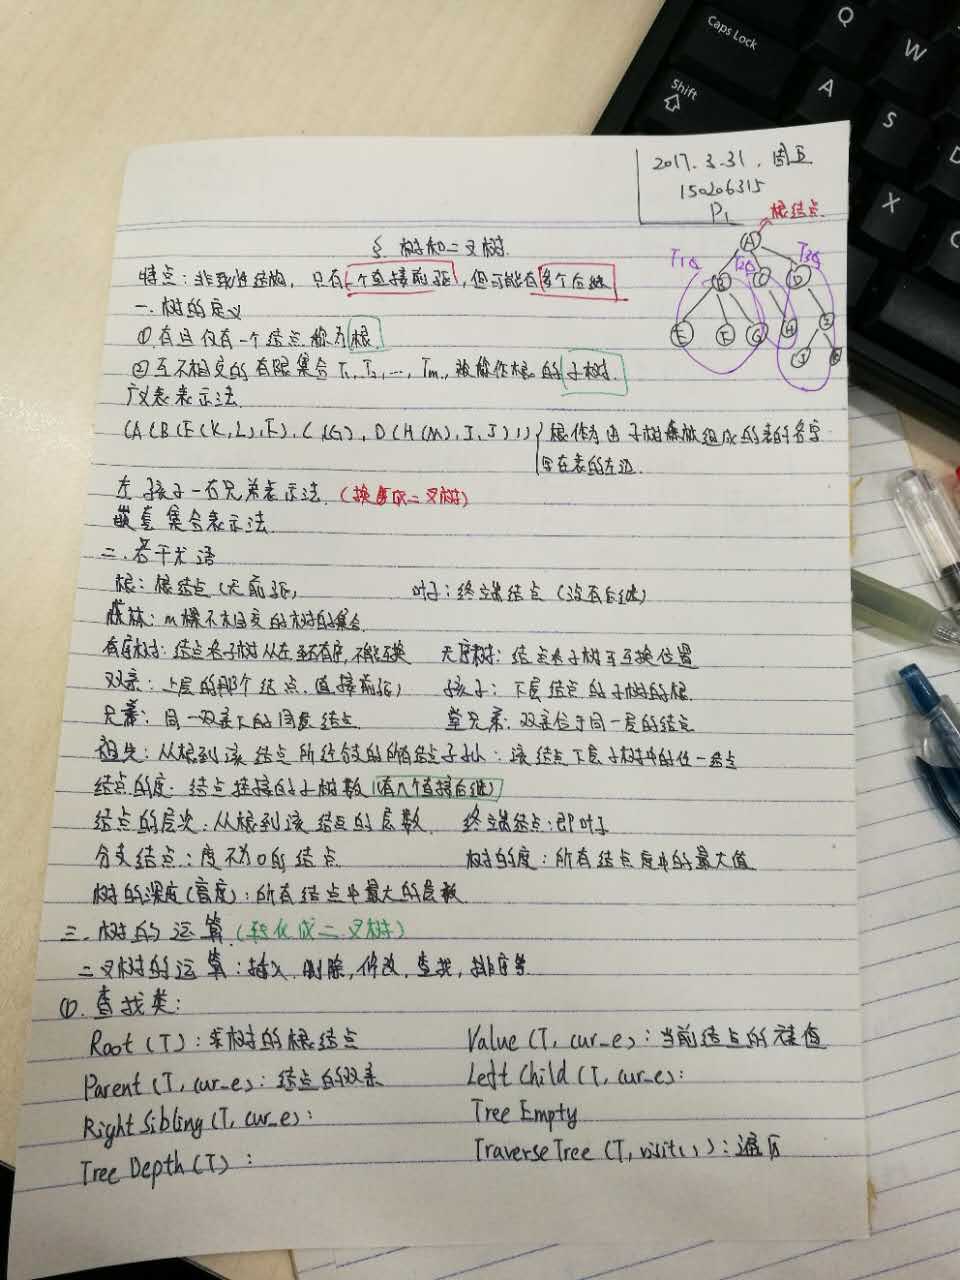 2017.3.31. 周五
150206315
P1
根结点
§ 树和二叉树.
特点: 非线性结构, 只有一个直接前驱, 但可能有多个后继
一. 树的定义
① 有且仅有一个结点称为根.
② 互不相交的有限集合 T1, T2, ..., Tm, 被称作根的子树.
广义表表示法.
(A(B(E(K,L),F),C(G),D(H(M),I,J))) 根作为由子树森林组成的表的名字
写在表的左边.
左孩子-右兄弟表示法. (换成二叉树)
嵌套集合表示法.
二. 若干术语
根: 根结点 (无前驱) 叶子: 终端结点 (没有后继)
森林: m棵不相交的树的集合.
有序树: 结点各子树从左至右有序, 不能互换 无序树: 结点各子树可互换位置
双亲: 上层的那个结点. 直接前驱) 孩子: 下层结点的子树的根.
兄弟: 同一双亲下的同层结点 堂兄弟: 双亲位于同一层的结点
祖先: 从根到该结点所经分支的所有结点 子孙: 该结点下层子树中的任一结点
结点的度: 结点挂接的子树数 (有几个直接后继)
结点的层次: 从根到该结点的层数. 终端结点: 即叶子
分支结点: 度不为0的结点. 树的度: 所有结点度中的最大值
树的深度(高度): 所有结点中最大的层数.
三. 树的运算. (转化成二叉树)
二叉树的运算: 插入. 删除, 修改, 查找, 排序等
①. 查找类:
Root (T): 求树的根结点 Value (T, cur_e): 当前结点的值
Parent (T, cur_e): 结点的双亲 Left Child (T, cur_e):
Right Sibling (T, cur_e): Tree Empty
Tree Depth (T): Traverse Tree (T, visit()): 遍历
Caps Lock
Shift
Q
W
A
S
X